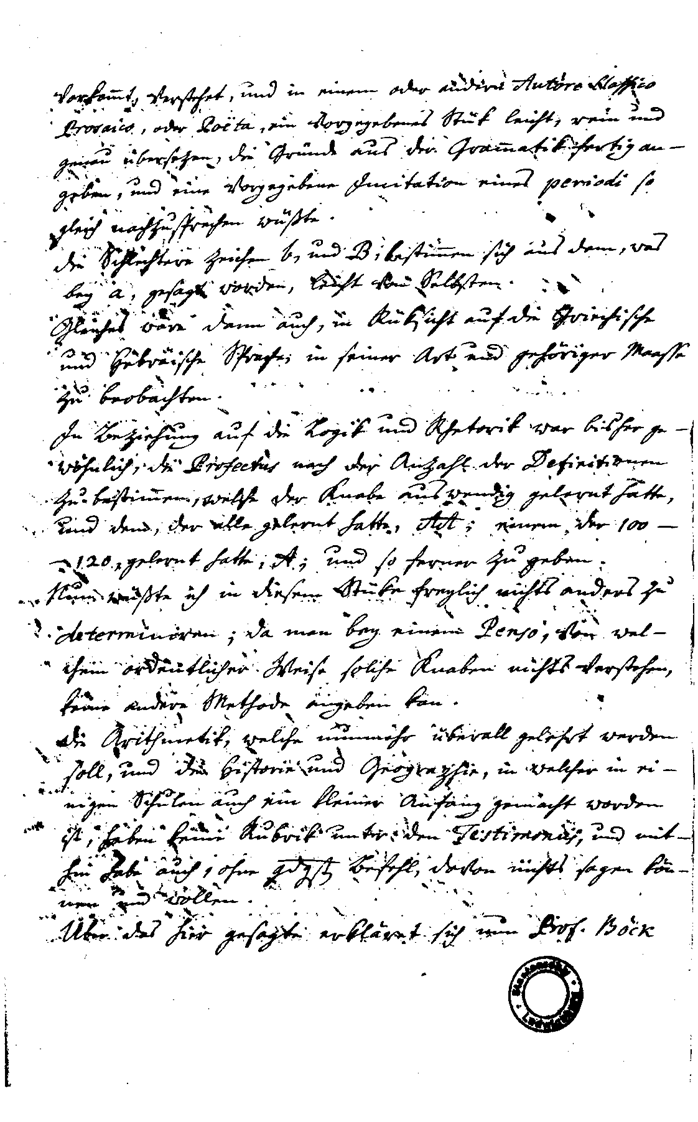 vorkommt, verstehet, und in einem oder andern Autore Classico
Prosaico, oder Poëta, ein vorgegebenes Stük leicht, rein und
genau übersetzen, die Gründe aus der Grammatik fertig an-
geben, und eine vorgegebene Imitation eines periodi so
gleich nachzusprechen wüßte.
die Schlechtere Zeichen b, und B, bestimmen sich aus dem, was
bey a, gesagt worden, leicht von Selbsten.
Gleiches wäre dann auch, in Rüksicht auf die Griechische
und Hebräische Sprache, in seiner Art und gehöriger Maasse
zu beobachten.
In Beziehung auf die Logik und Rhetorik war bisher ge-
wöhnlich, die Profectus nach der Anzahl der Definitionen
zu bestimmen, welche der Knabe auswendig gelernt hatte,
und dem, der alle gelernt hatte, AA; einem, der 100 —
— 120, gelernt hatte, A; und so ferner zu geben.
Nun wüßte ich in diesem Stüke freylich nichts anders zu
determiniren; da man bey einem Penso, von wel-
chem ordentlicher Weise solche Knaben nichts verstehen,
keine andere Methode angeben kan.
die Arithmetik, welche nunmehr überall gelehrt werden
soll, und die Historie und Geographie, in welcher in ei-
nigen Schulen auch ein kleiner Anfang gemacht worden
ist, haben keine Rubrik unter den Testimoniis, und mit-
hin habe auch, ohne gdgst Befehl, davon nichts sagen kön-
nen und wollen.
Über das hier gesagte erkläret sich nun Prof. Böck